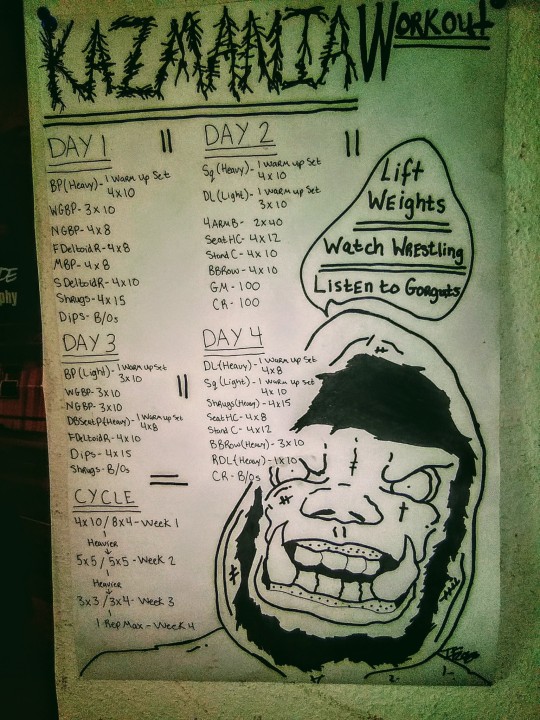 KAZMANIA WORKOUT
DAY 1
BP(Heavy)- 1 Warm up Set
4x10
WGBP- 3x10
NGBP- 4x8
FDeltoidR- 4x8
MBP- 4x8
SDeltoidR- 4x10
Shrugs- 4x15
Dips- B/Os
DAY 2
Sq(Heavy)- 1 Warm up Set
4x10
DL(Light)- 1 Warm up Set
3x10
4ArmB- 2x40
SeatHC- 4x12
StandC- 4x10
BBRow- 4x10
GM- 100
CR- 100
Lift
Weights
Watch Wrestling
Listen to Gorguts
DAY 3
BP(Light)- 1 Warm up Set
3x10
WGBP- 3x10
NGBP- 3x10
DBSeatP(Heavy)- 1 Warm up Set
4x8
FDeltoidR- 4x10
Dips- 4x15
Shrugs- B/Os
DAY 4
DL(Heavy)- 1 Warm up Set
4x8
Sq(Light)- 1 Warm up Set
4x10
Shrugs(Heavy)- 4x15
SeatHC- 4x8
StandC- 4x12
BBRow(Heavy)- 3x10
RDL(Heavy)- 1x10
CR- B/Os
CYCLE
4x10/8x4- Week 1
Heavier
5x5/5x5- Week 2
Heavier
3x3/3x4- Week 3
1 Rep Max- Week 4